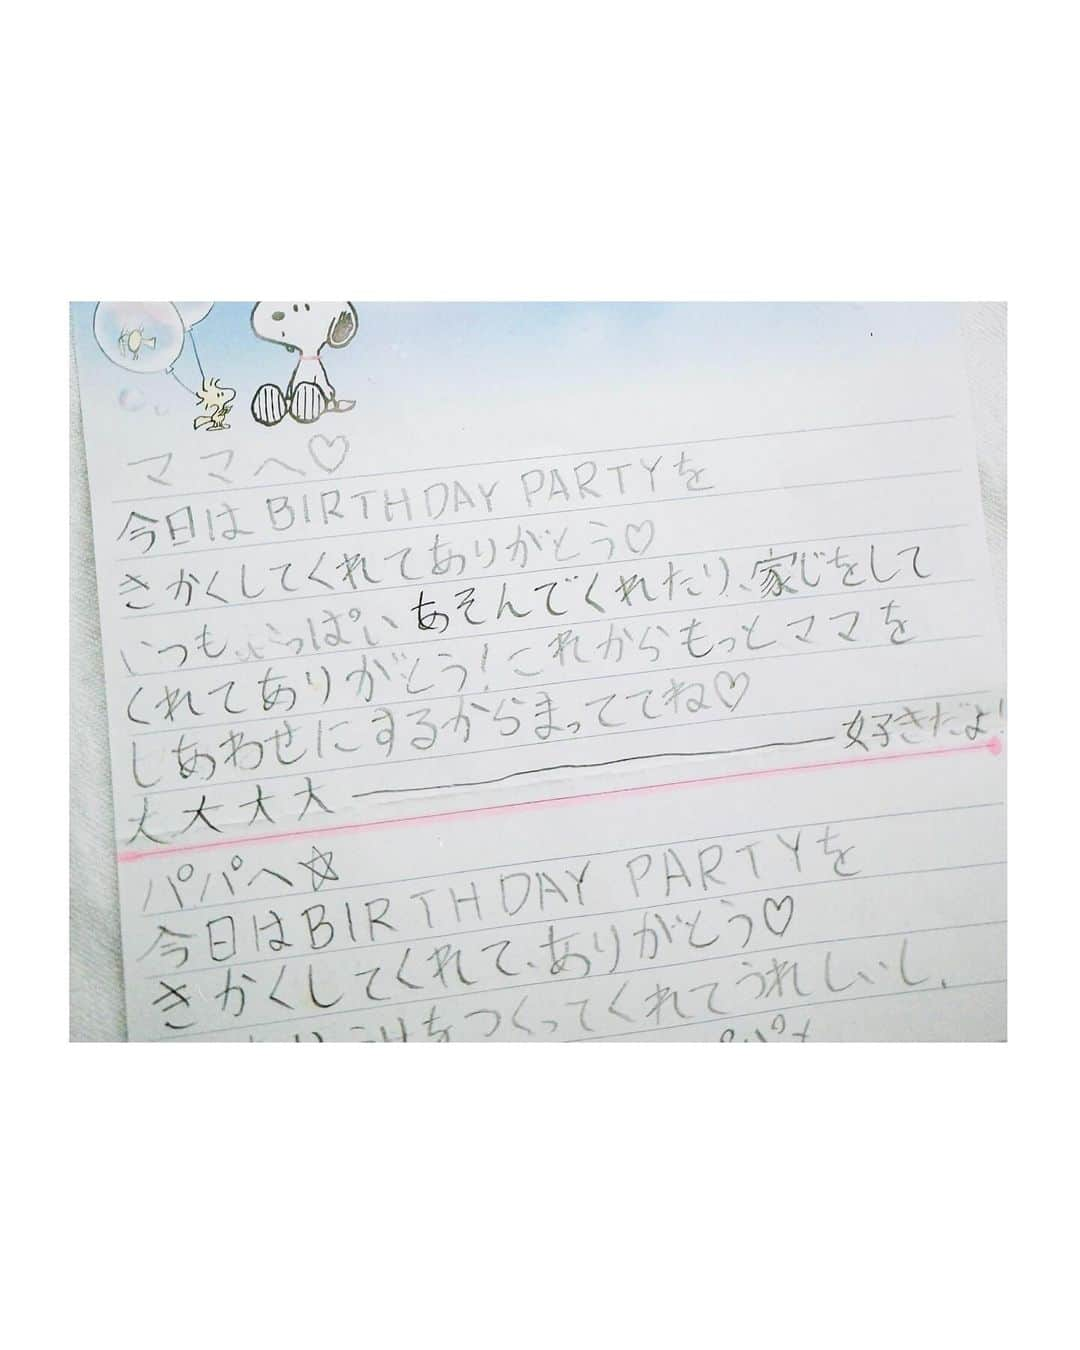 ママへ♡
今日はBIRTHDAY PARTYを
きかくしてくれてありがとう♡
いつもいっぱいあそんでくれたり、家じをして
くれてありがとう！これからもっとママを
しあわせにするからまっててね♡
大大大大――――好きだよ！
パパへ☆
今日はBIRTHDAY PARTYを
きかくしてくれて、ありがとう♡
をつくってくれてうれしいし、